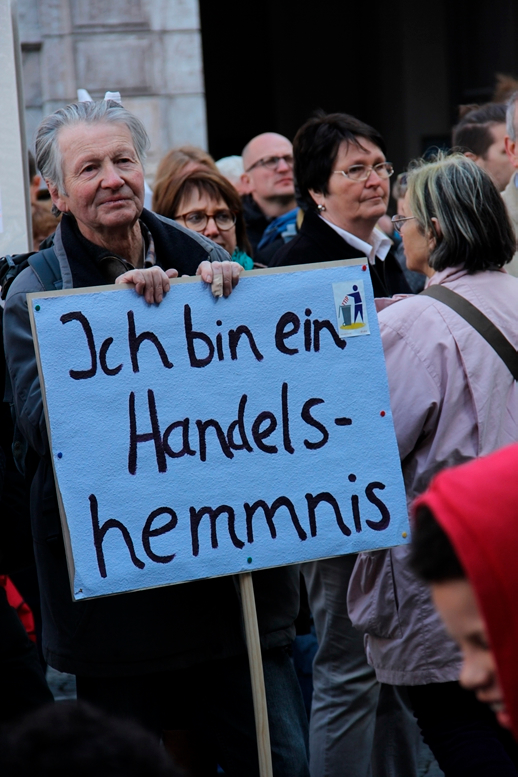 Ich bin ein
Handels-
hemmnis